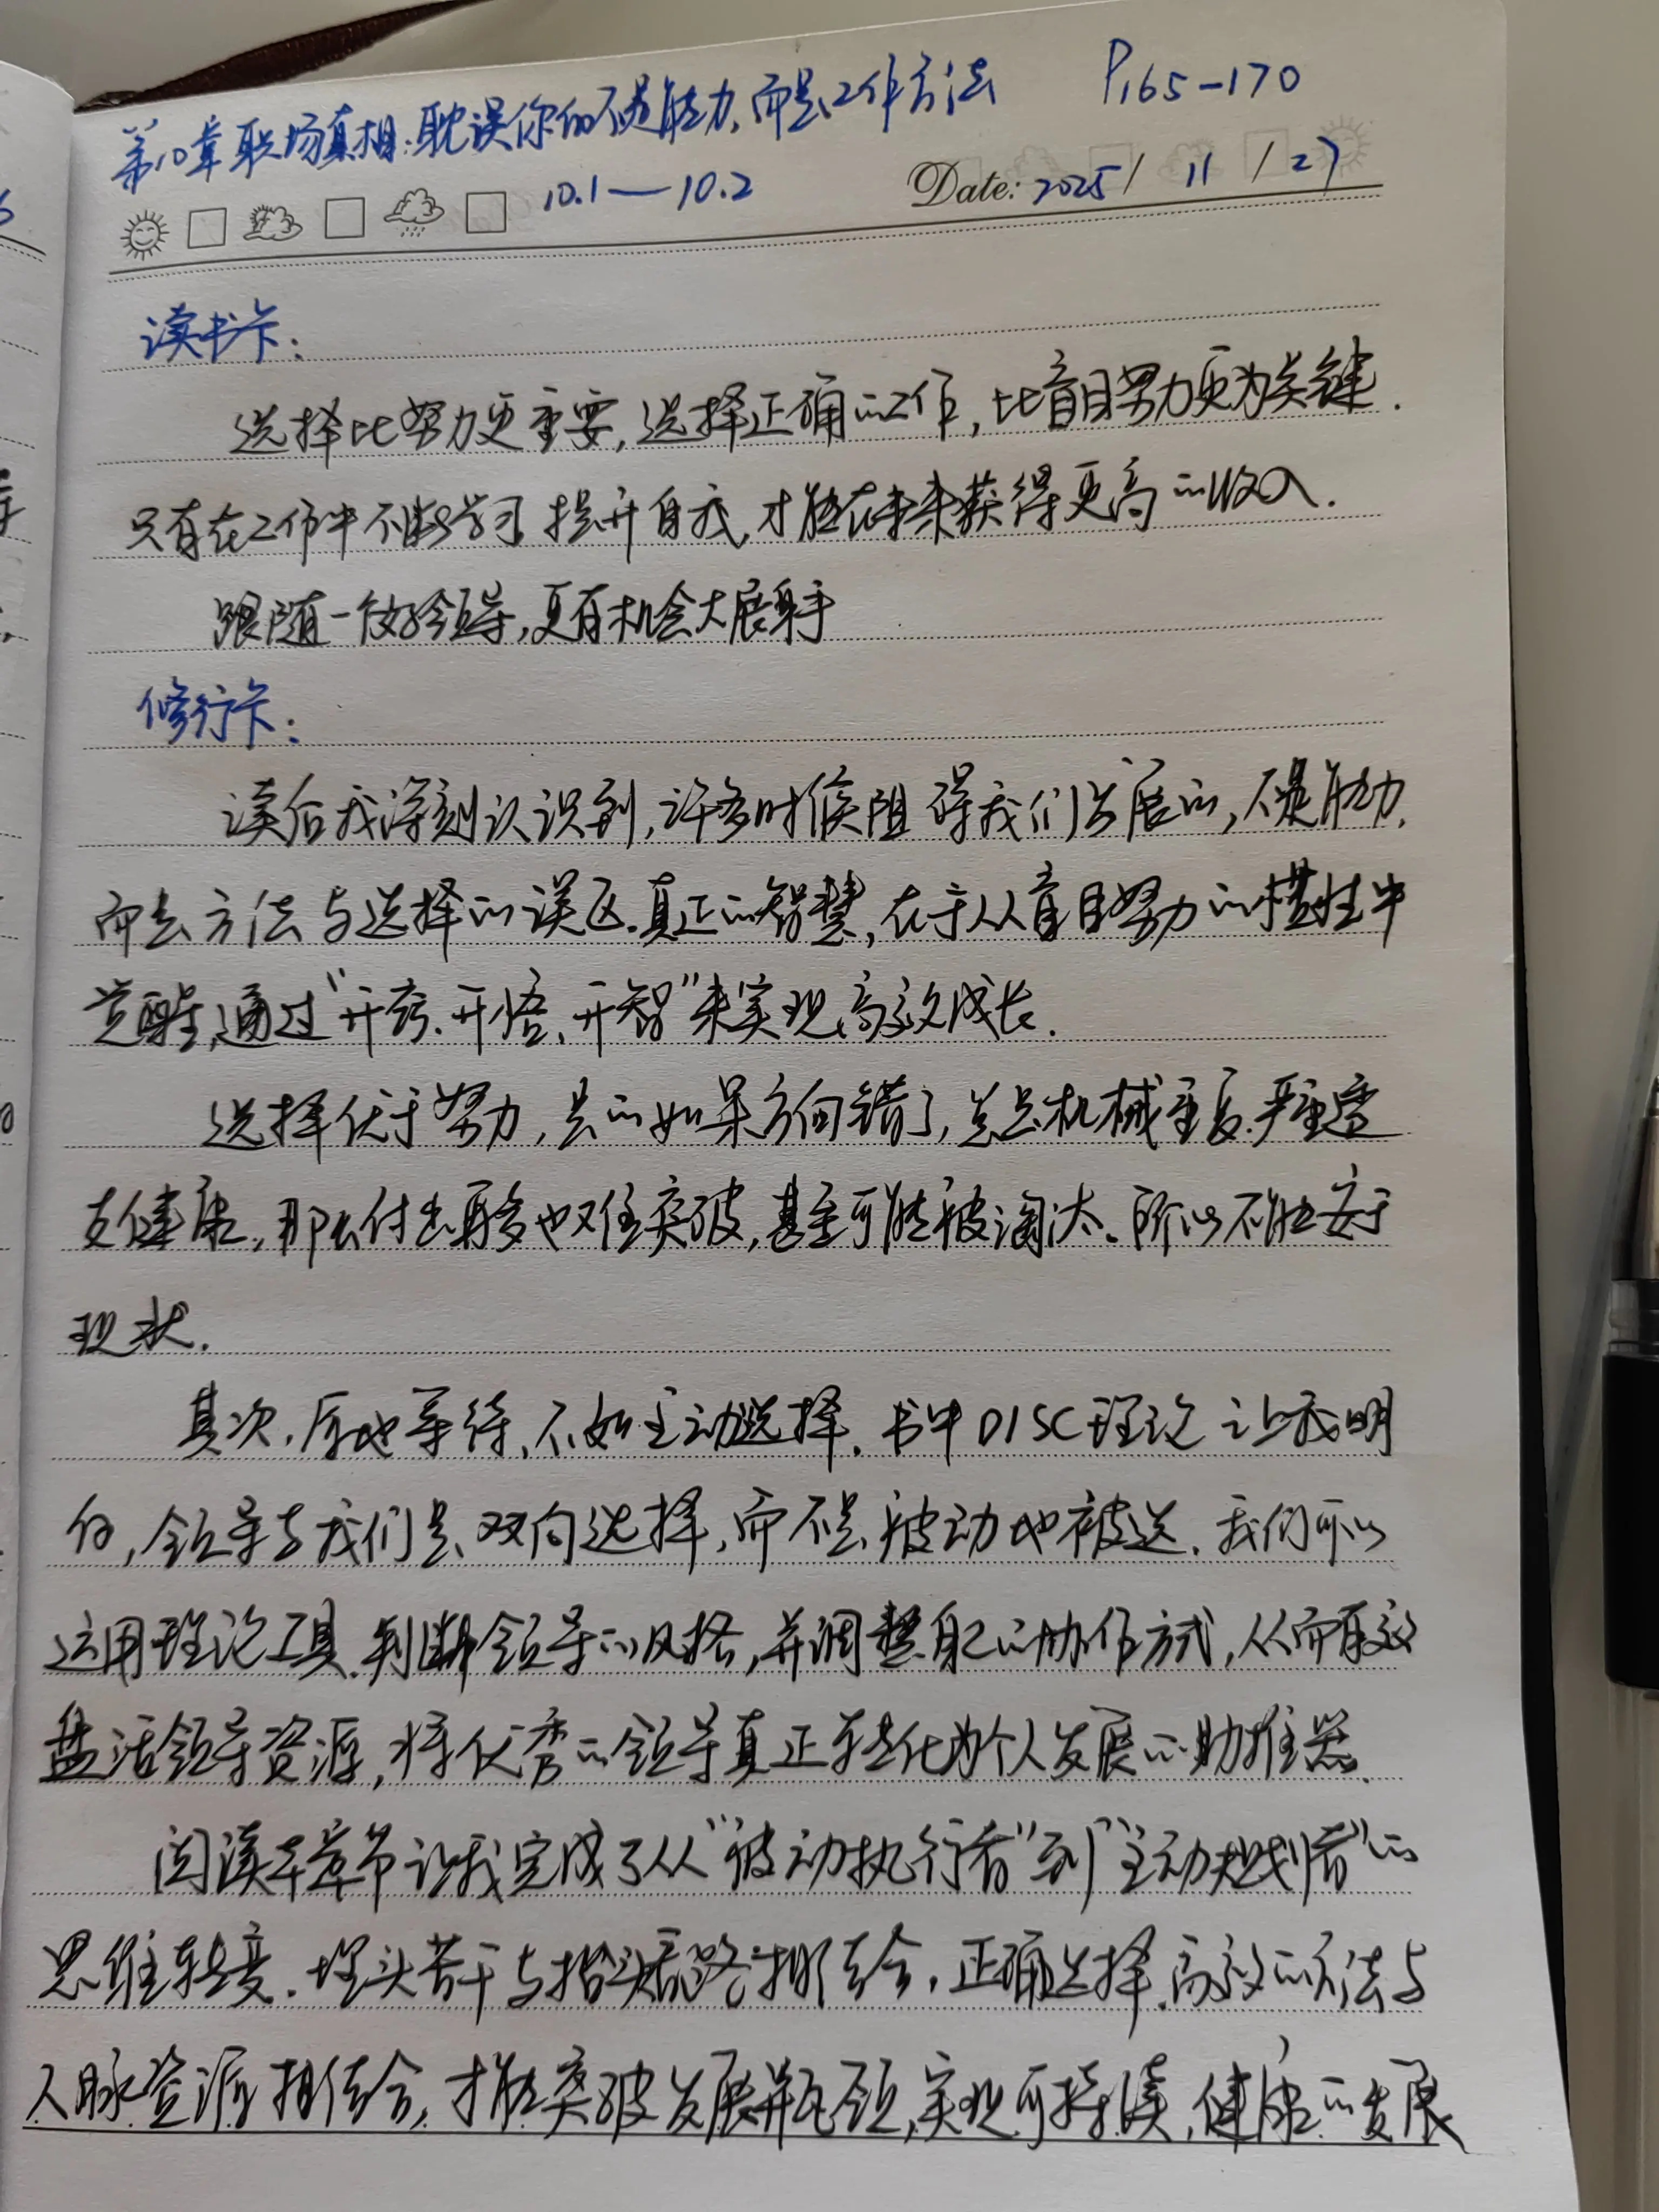 第10章 职场真相:耽误你的不是能力,而是工作方法 P165-170
10.1—10.2 Date: 2025/ 11 / 27
读书卡:
选择比努力更重要,选择正确的工作,比盲目努力更为关键.
只有在工作中不断学习提升自我,才能在未来获得更高的收入.
跟随一个好领导,更有机会大展身手
修行卡:
读后我深刻认识到,许多时候阻碍我们发展的,不是能力,
而是方法与选择的误区.真正的智慧,在于从盲目努力的惯性中
觉醒,通过"开窍、开悟、开智"来实现高效成长.
选择优于努力,目的如果方向错了,总是机械重复.严重透
支健康,那么付出再多也难住突破,甚至可能被淘汰。所以不能安于
现状.
其次,原地等待,不如主动选择.书中DISC理论让我明
白,领导与我们是双向选择,而不是被动地被选.我们可以
运用理论工具.判断领导的风格,并调整自己的协作方式,从而有效
盘活领导资源,将优秀的领导真正转化为个人发展的助推器.
阅读本章节让我完成了从"被动执行者"到"主动规划者"的
思维转变.埋头苦干与抬头看路相结合,正确选择.高效的方法与
人脉资源相结合,才能突破发展瓶颈,实现可持续,健康的发展